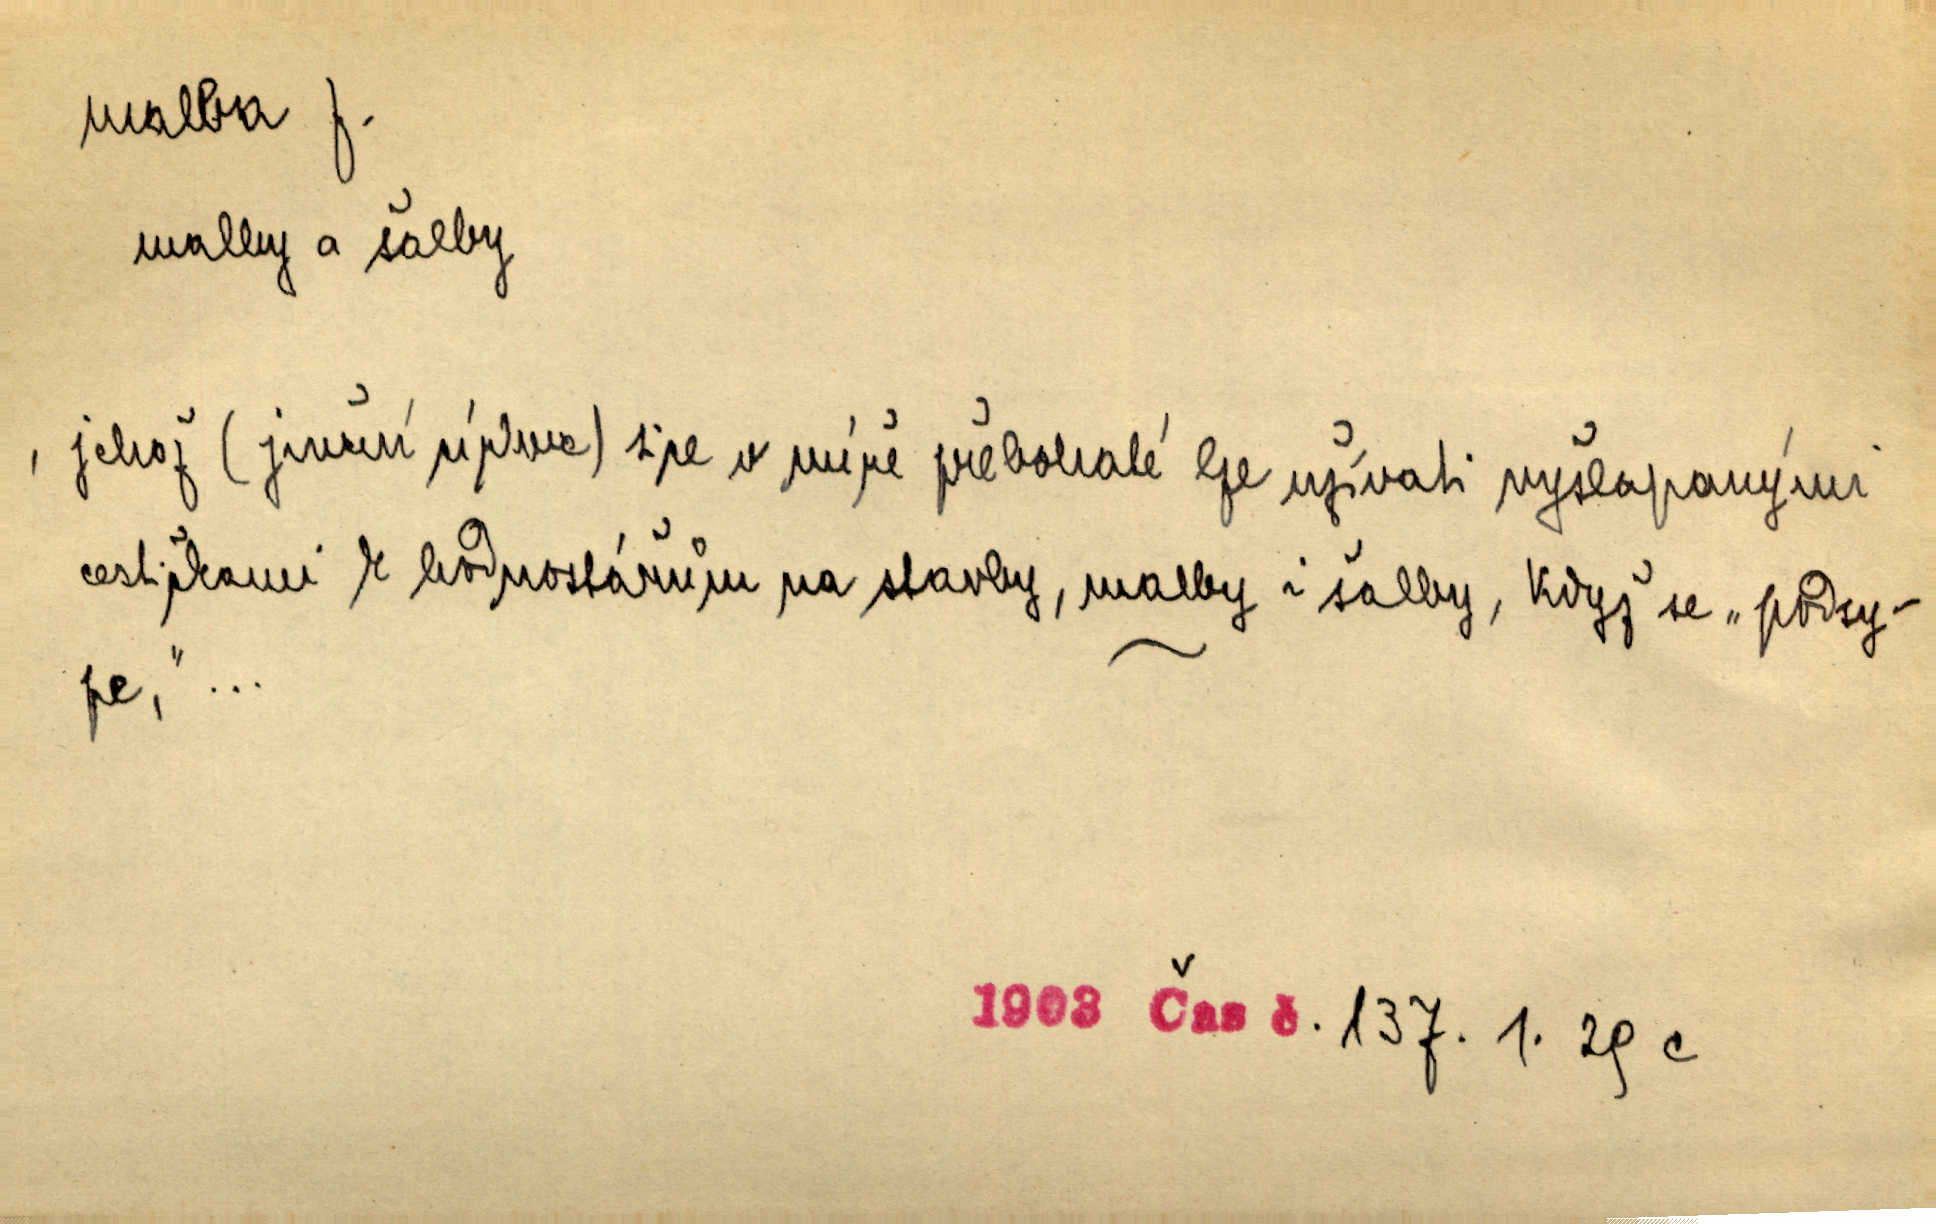 malba f.
malby a šalby
, jehož (jmění) spe v míře přebohaté lze užívati vyšlapanými
cestičkami k hodnostářům na stavby, malby i šalby, když se „podsy-
pe," ...
1903 Čas č. 137. 1. 29 c